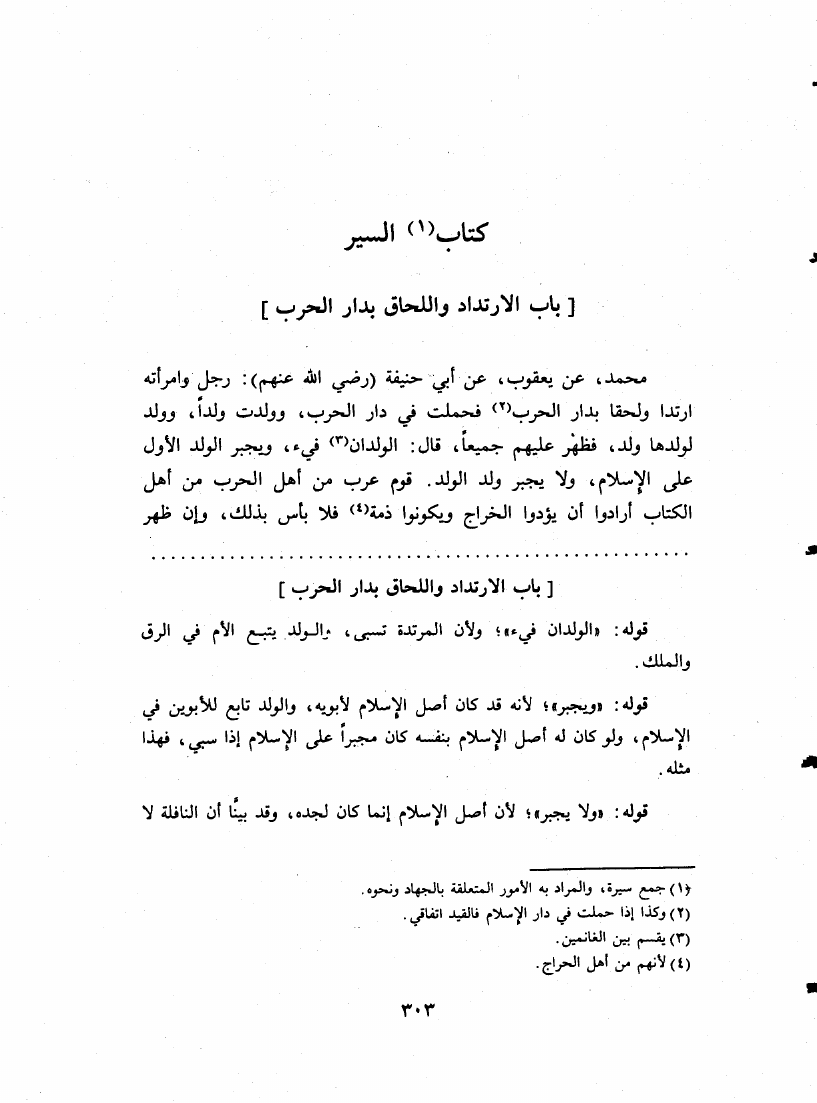 كتاب(١) السير
[ باب الارتداد واللحاق بدار الحرب ]
محمد، عن يعقوب، عن أبي حنيفة (رضي الله عنهم): رجل وامرأته
ارتدا ولحقا بدار الحرب(٢) فحملت في دار الحرب، وولدت ولداً، وولد
لولدها ولد، فظهر عليهم جميعاً، قال: الولدان(٣) فيء، ويجبر الولد الأول
على الإسلام، ولا يجبر ولد الولد. قوم عرب من أهل الحرب من أهل
الكتاب أرادوا أن يؤدوا الخراج ويكونوا ذمة(٤) فلا بأس بذلك، وإن ظهر
[ باب الارتداد واللحاق بدار الحرب ]
قوله: «الولدان فيء»؛ ولأن المرتدة تسبى، والولد يتبع الأم في الرق
والملك.
قوله: «ويجبر»؛ لأنه قد كان أصل الإسلام لأبويه، والولد تابع للأبوين في
الإسلام، ولو كان له أصل الإسلام بنفسه كان مجبراً على الإسلام إذا سبي، فهذا
مثله.
قوله: «ولا يجبر»؛ لأن أصل الإسلام إنما كان لجده، وقد بينَّا أن النافلة لا
(١) جمع سيرة، والمراد به الأمور المتعلقة بالجهاد ونحوه.
(٢) وكذا إذا حملت في دار الإسلام فالقيد اتفاقي.
(٣) يقسم بين الغانمين.
(٤) لأنهم من أهل الحراج.
٣٠٣